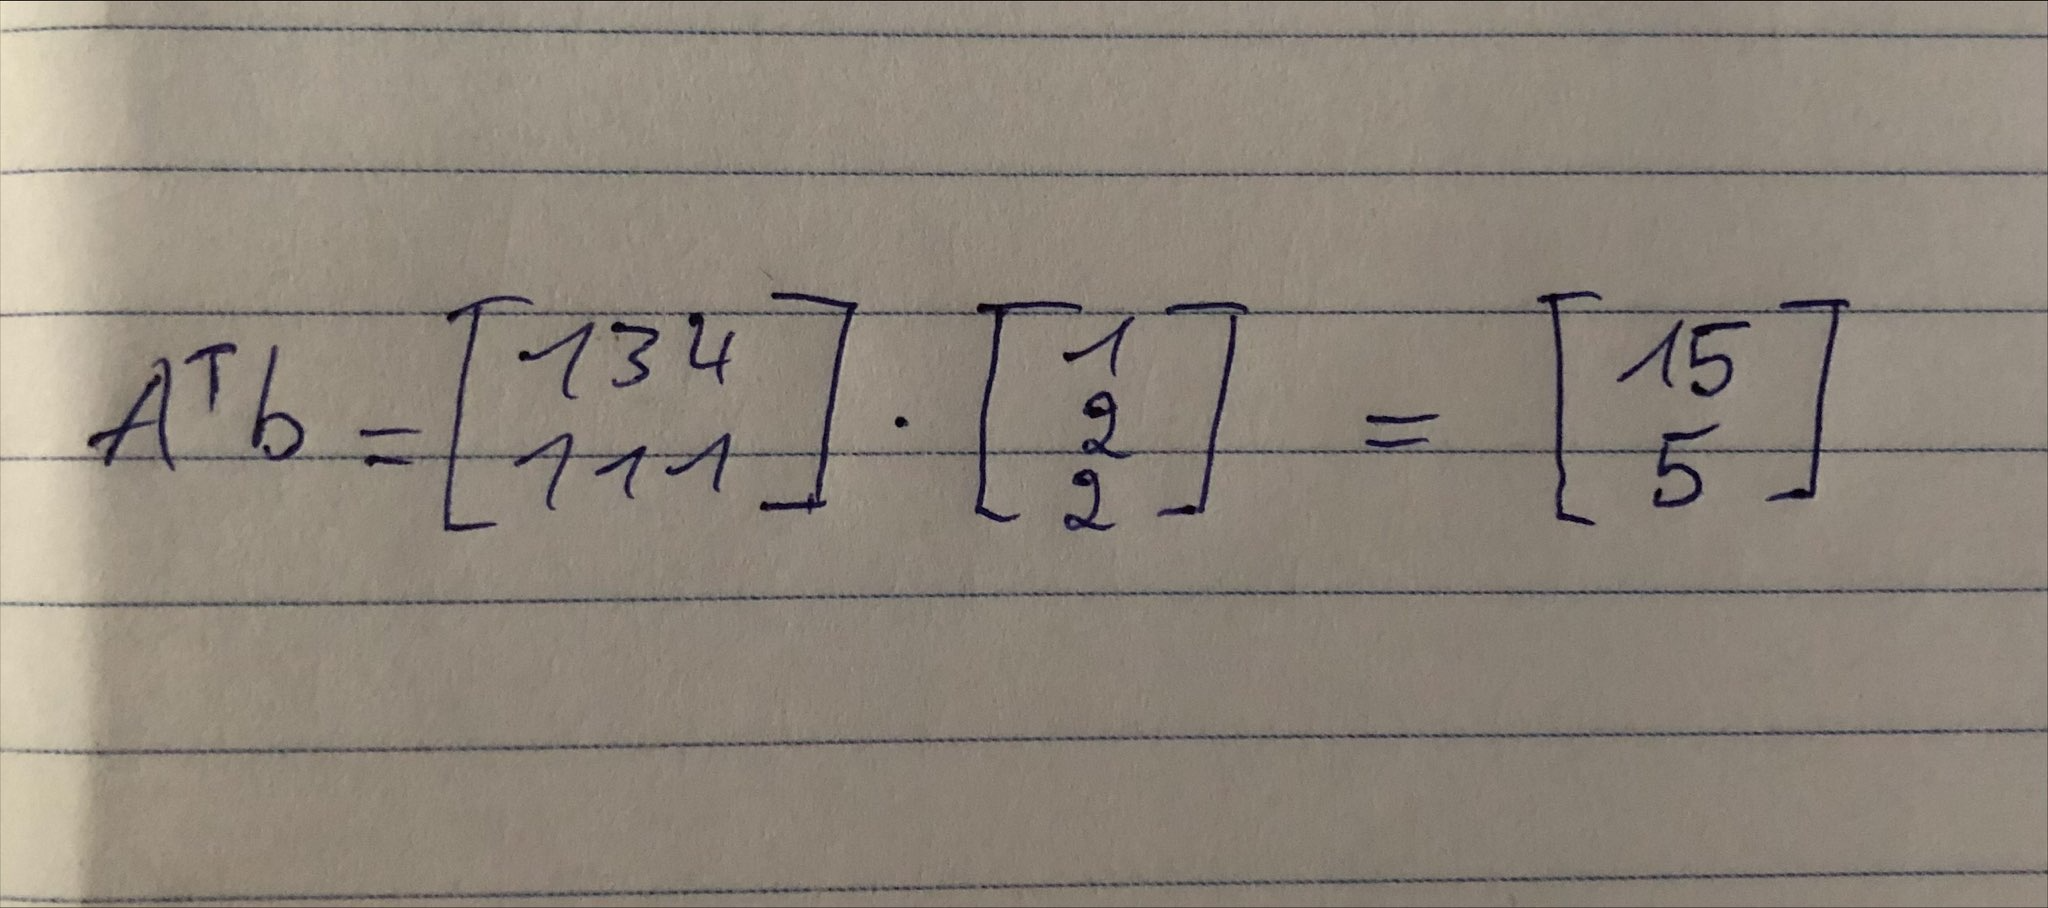 Aᵀb = [1 3 4; 1 1 1] · [1; 2; 2] = [15; 5]